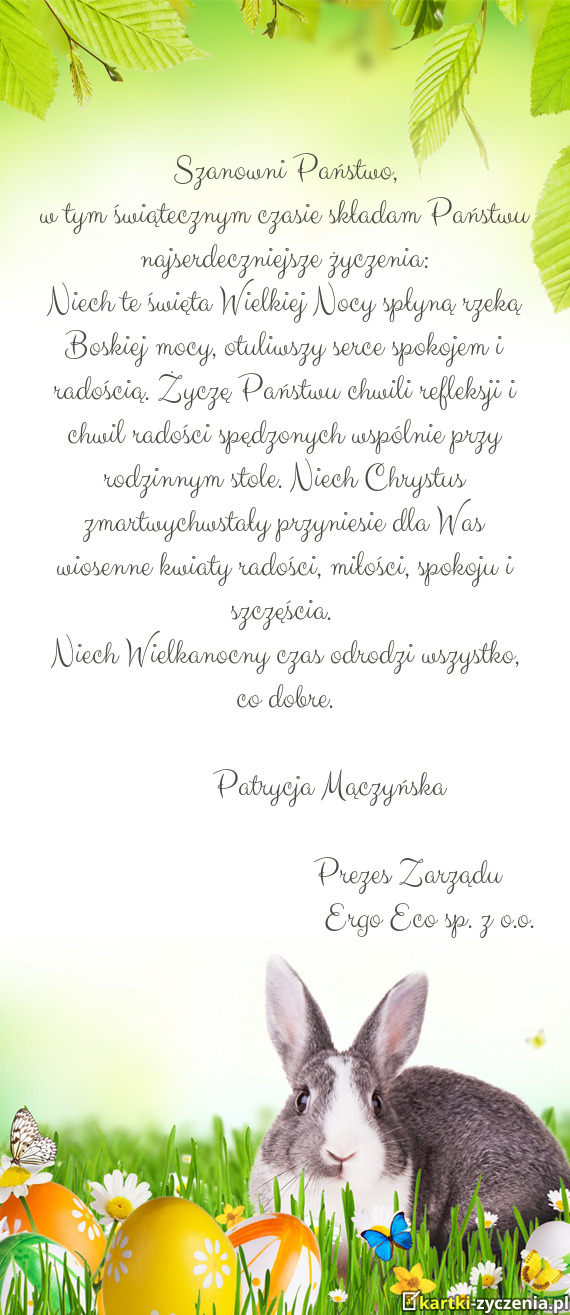 Szanowni Państwo,
w tym świątecznym czasie składam Państwu
najserdeczniejsze życzenia:
Niech te święta Wielkiej Nocy spłyną rzeką
Boskiej mocy, otuliwszy serce spokojem i
radością. Życzę Państwu chwili refleksji i
chwil radości spędzonych wspólnie przy
rodzinnym stole. Niech Chrystus
zmartwychwstały przyniesie dla Was
wiosenne kwiaty radości, miłości, spokoju i
szczęścia.
Niech Wielkanocny czas odrodzi wszystko,
co dobre.
Patrycja Mączyńska
Prezes Zarządu
Ergo Eco sp. z o.o.
kartki-zyczenia.pl